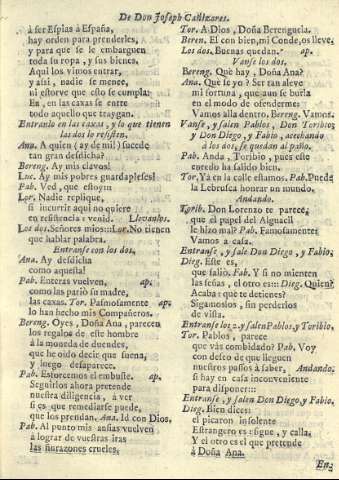 De Don Joseph Cañizares.
à ser Espias à España,
hay orden para prenderles,
y para que se le embarguen
toda su ropa, y sus bienes.
Aqui los vimos entrar,
y asi, nadie se menee,
ni estorve que esto se cumpla:
Ea, en las caxas se entre
todo aquello que traygan.
Entranlo en las caxas, y lo que tienen
las dos lo resisten.
Ana. A quien (ay de mi!) sucede
tan gran desdicha?
Bereng. Ay mis clavos!
Luc. Ay mis pobres guardapieses!
Pab. Ved, que estoy::
Lor. Nadie replique,
si incurrir aqui no quiere
en resistencia: venid. Llevanlos.
Los dos. Señores mios:::Lor.No tienen
que hablar palabra.
Entranse con los dos.
Ana. Ay desdicha
como aquesta!
Pab. Enteras vuelven, ap.
como las pariò su madre,
las caxas. Tor. Pasmosamente ap.
lo han hecho mis Compañeros.
Bereng. Oyes, Doña Ana, parecen
los regalos de este hombre
à la moneda de duendes,
que he oido decir que suena,
y luego desaparece.
Pab. Estorcemos el embuste. ap.
Seguirlos ahora pretende
nuestra diligencia, à ver
si es que remediarse puede,
que los prendan. Ana. Id con Dios.
Pab. Al punto mis ansias vuelven
à lograr de vuestras iras
las ñurazones crueles.
Tor. A Dios, Doña Berenguela.
Beren. El con bien, mi Conde, os lleve.
Los dos. Buenas quedan. ap.
Vanse los dos.
Bereng. Què hay, Doña Ana?
Ana. Que sè yo? Ser tan aleve
mi fortuna, que aun se burla
en el modo de ofenderme:
Vamos alla dentro. Bereng. Vamos.
Vanse, y salen Pablos, Don Toribio;
y Don Diego, y Fabio, acechando
à los dos, se quedan al paño.
Pab. Anda, Toribio, pues este
enredo ha salido bien.
Tor. Ya en la calle estamos. Pab. Puede
la Lebrusca honrar un mundo.
Andando.
Torib. Don Lorenzo te parece,
que al papel del Alguacil
le hizo mal? Pab. Famosamente:
Vamos à casa.
Entranse, y sale Don Diego, y Fabio;
Dieg. Este es,
que saliò. Fab. Y si no mienten
las señas, el otro es::: Dieg. Quien?
Acaba: què te detienes?
Sigamoslos, sin perderlos
de vista.
Entranse los 2. y salen Pablos, y Toribio,
Tor. Pablos, parece
que vàs combidado? Pab. Voy
con deseo de que lleguen
nuestros pasos à saber, Andando.
si hay en casa inconveniente
para disponer:::
Entranse, y salen Don Diego, y Fabio,
Dieg. Bien dices:
el picaron insolente
Estrangero es: sigue, y calla.
Y el otro es el que pretende
à Doña Ana.
En-